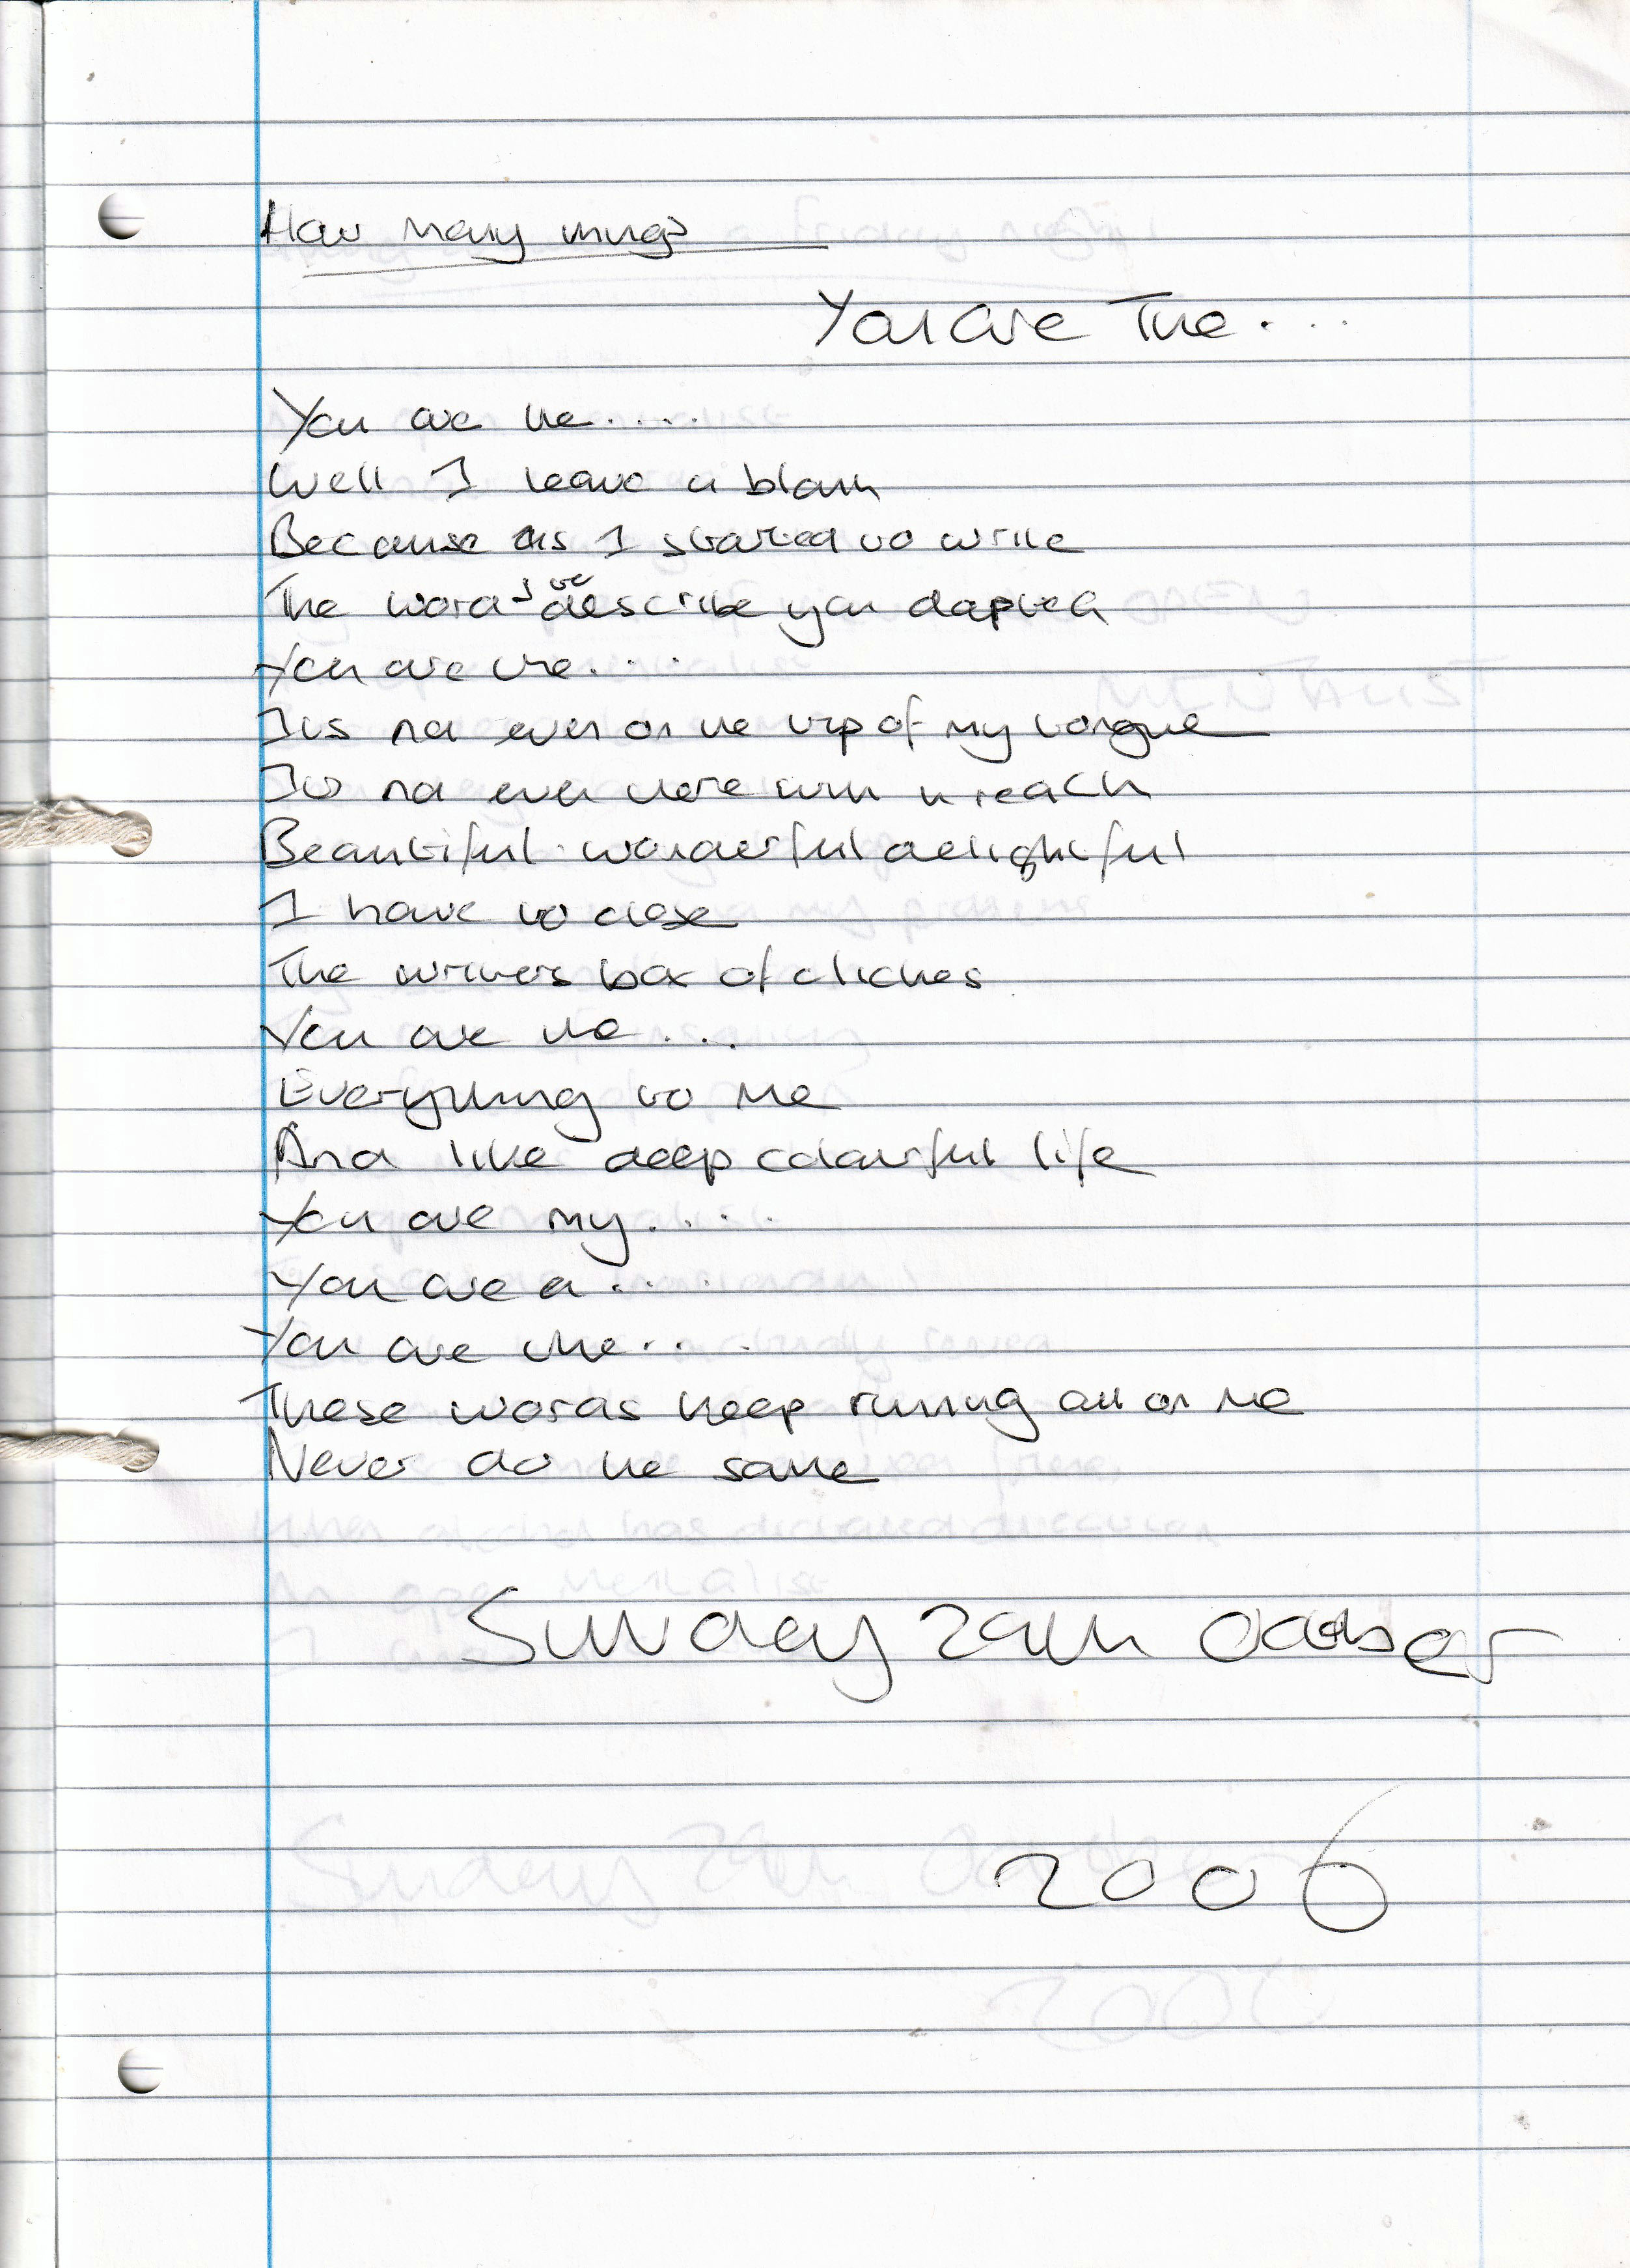 How Many things
You are The....
You are the.....
Well I leave a blank
Because as I started to write
The words to describe you
You are the....
Its not even on the tip of my tongue
Its not even there with in reach
Beautiful wonderful delightful
I have to close
The writers box of cliches
You are the...
Everything to Me
And like deep colourful life
You are my....
You are a....
You are the...
These words keep running out on me
Never do the same
Sunday 29th October
2006